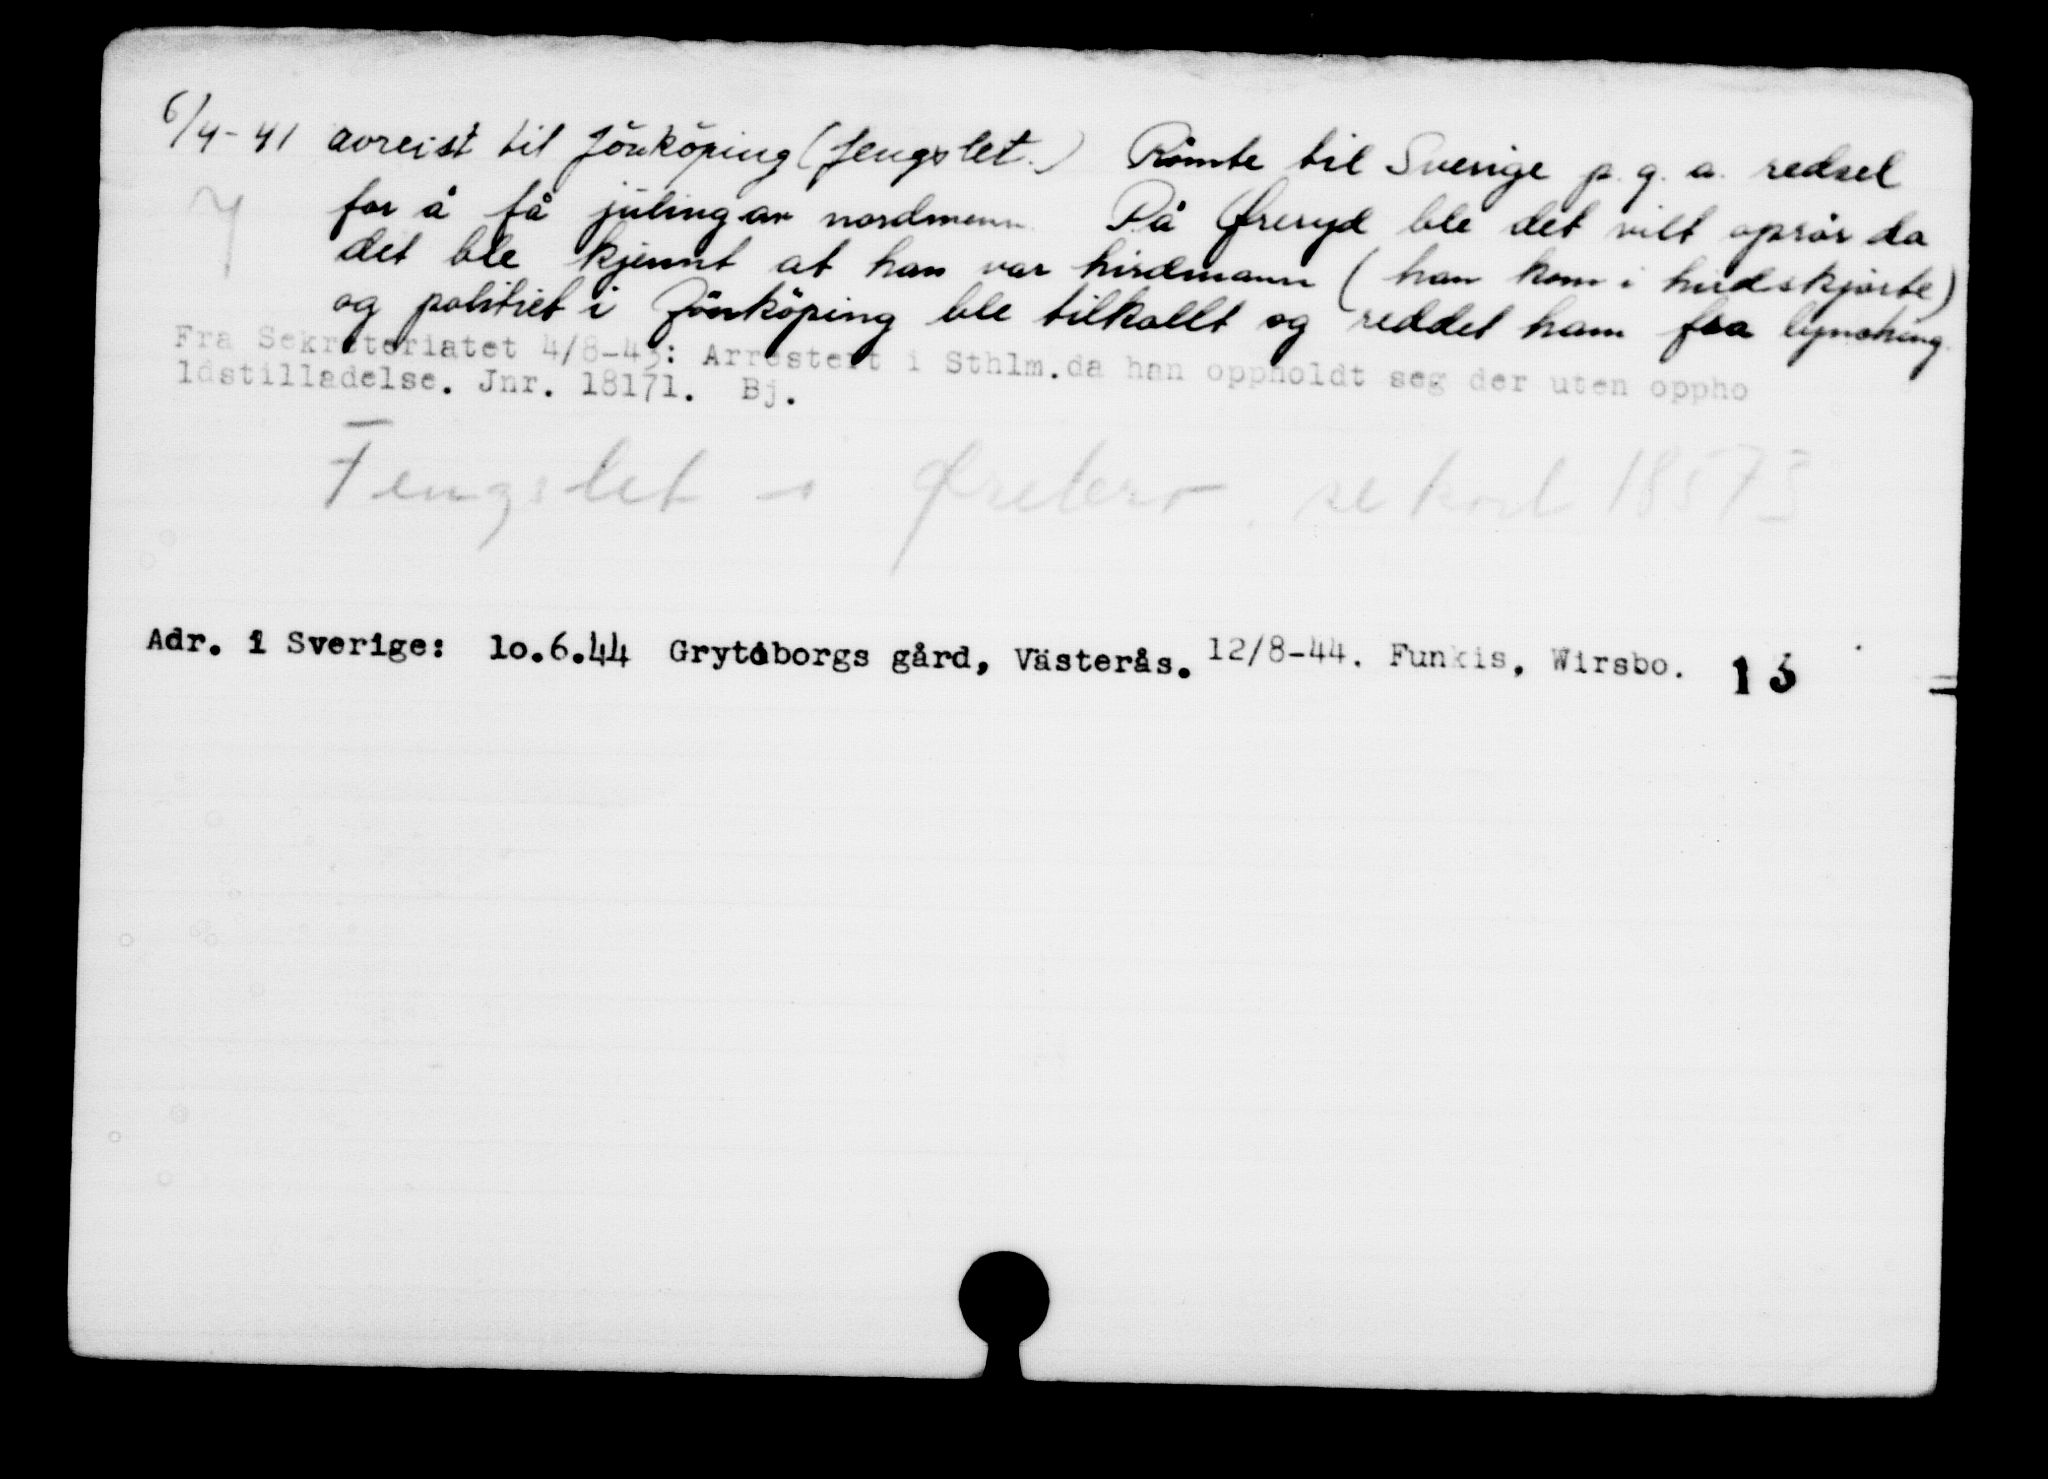 6/4-41 avreist til Jönköping (fengslet.) Römte til Sverige p.g.a. redsel
for å få juling av nordmenn. På Øreryd ble det vilt oprör da
det ble kjennt at han var hirdmann (han kom i hirdskjorte)
og politiet i Jönköping ble tilkallt og reddet ham fra lynching.
Fra Sekreteriatet 4/8-43: Arrestert i Sthlm.da han oppholdt seg der uten oppho
ldstilladelse. Jnr. 18171. Bj.
Fengslet i Ørebro. se kort 18573
Adr. i Sverige: lo.6.44 Grytaborgs gård, Västerås. 12/8-44. Funkis, Wirsbo. 13